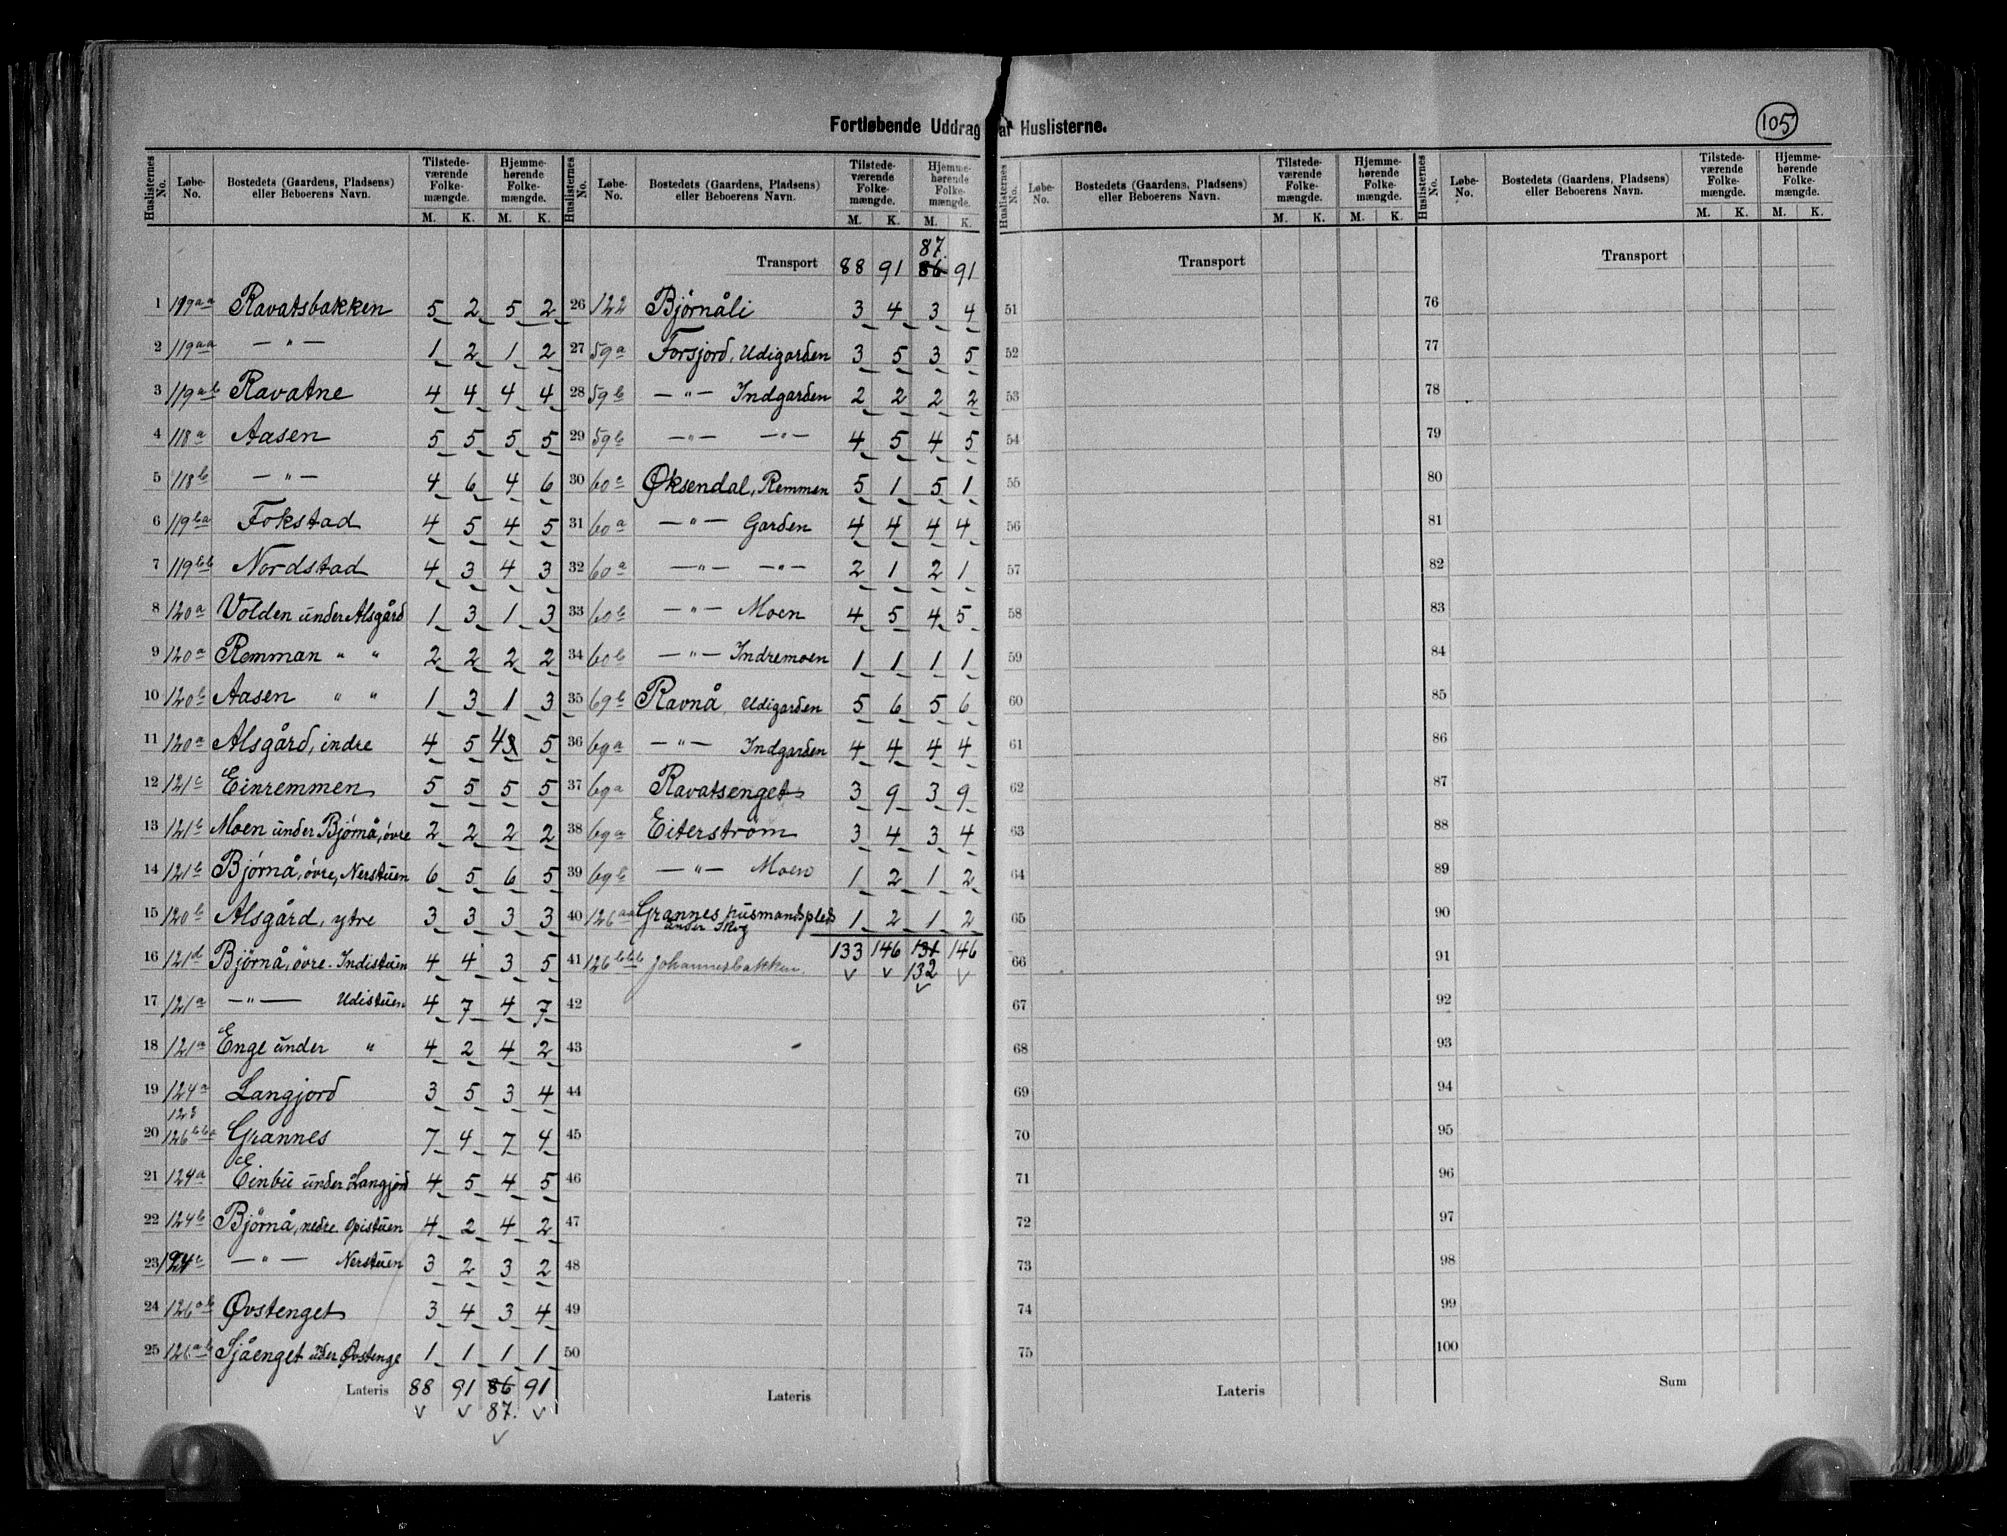 Fortløbende Uddrag af Huslisterne.
105
Huslisternes No. Løbe-No. Bostedets (Gaardens, Pladsens) eller Beboerens Navn. Tilstedeværende Folkemængde. M. K. Hjemmehørende Folkemængde. M. K.
1 119aa Ravatsbakken 5 2 5 2
2 119aa — " — 1 2 1 2
3 119ab Ravatne 4 4 4 4
4 118a Aasen 5 5 5 5
5 118b — " — 4 6 4 6
6 119ba Fokstad 4 5 4 5
7 119bb Nordstad 4 3 4 3
8 120a Volden under Alsgård 1 3 1 3
9 120a Remman " " 2 2 2 2
10 120b Aasen " " 1 3 1 3
11 120a Alsgård, indre 4 5 4 5
12 121c Einremmen 5 5 5 5
13 121b Moen under Bjørnå, övre 2 2 2 2
14 121b Bjørnå, övre, Nerstuen 6 5 6 5
15 120b Alsgård, ytre 3 3 3 3
16 121d Bjørnå, övre. Indistuen 4 4 3 5
17 121a — " — Udistuen 4 7 4 7
18 121a Enge under " 4 2 4 2
19 124a Langjord 3 5 3 4
123
20 126bba Grannes 7 4 7 4
21 124a Einbu under Langjord 4 5 4 5
22 124b Bjørnå, nedre Opistuen 4 2 4 2
23 124c — " — Nerstuen 3 2 3 2
24 126ab Øvstenget 3 4 3 4
25 126ab Sjåenget under Øvstenge 1 1 1 1
Lateris 88 91 86 91
87.
Huslisternes No. Løbe-No. Bostedets (Gaardens, Pladsens) eller Beboerens Navn. Tilstedeværende Folkemængde. M. K. Hjemmehørende Folkemængde. M. K.
87.
Transport 88 91 86 91
26 122 Bjørnåli 3 4 3 4
27 59a Forsjord, Udigarden 3 5 3 5
28 59b — " — Indgarden 2 2 2 2
29 59b — " — — " — 4 5 4 5
30 60a Øksendal, Remmen 5 1 5 1
31 60a — " — Garden 4 4 4 4
32 60a — " — — " — 2 1 2 1
33 60b — " — Moen 4 5 4 5
34 60b — " — Indremoen 1 1 1 1
35 69b Ravnå, Udigarden 5 6 5 6
36 69a — " — Indgarden 4 4 4 4
37 69a Ravatsenget 3 9 3 9
38 69a Eiterstrøm 3 4 3 4
39 69b — " — Moen 1 2 1 2
40 126aa Grannes husmandsplads under Skog 1 2 1 2
133 146 131 146
41 126bbb Johannesbakken 132
42
43
44
45
46
47
48
49
50
Lateris
Huslisternes No. Løbe-No. Bostedets (Gaardens, Pladsens) eller Beboerens Navn. Tilstedeværende Folkemængde. M. K. Hjemmehørende Folkemængde. M. K.
Transport
51
52
53
54
55
56
57
58
59
60
61
62
63
64
65
66
67
68
69
70
71
72
73
74
75
Lateris
Huslisternes No. Løbe-No. Bostedets (Gaardens, Pladsens) eller Beboerens Navn. Tilstedeværende Folkemængde. M. K. Hjemmehørende Folkemængde. M. K.
Transport
76
77
78
79
80
81
82
83
84
85
86
87
88
89
90
91
92
93
94
95
96
97
98
99
100
Sum